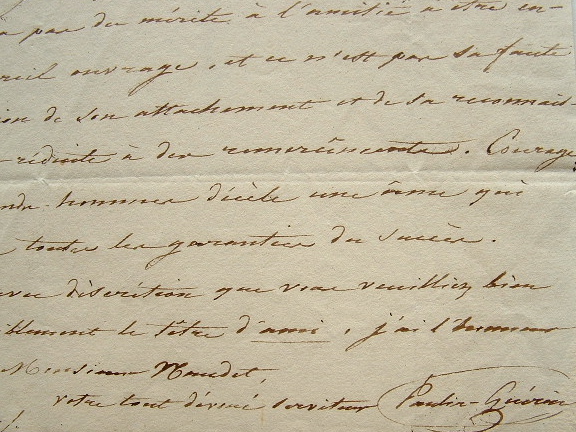 pas du mérite à l'amitié à être en-
ouvrage, et ce n'est pas sa faute
de son attachement et de sa reconnais-
réduite à des remerciments. Courage
hommes décèle une âme qui
toutes les garanties du succès.
discrétion que vous veuilliez bien
le titre d'ami, j'ai l'honneur
Monsieur Naudet,
votre tout dévoué serviteur Paulin-Guérin